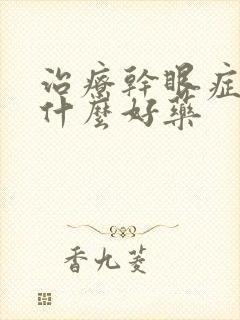 治療幹眼症
什麼好藥
香九菱